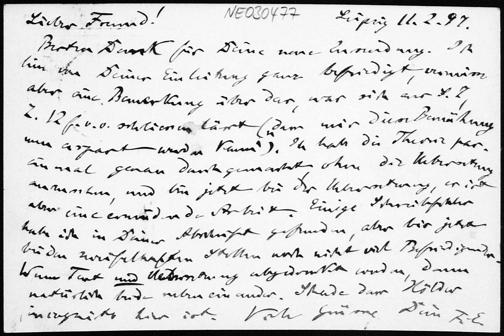 NE030477
Lieber Freund! Leipzig 11.2.97.
Besten Dank für Deine neue Zusendung. Ich
bin von Deiner Einleitung ganz befriedigt, vermisse
aber eine Bemerkung über das, was sich aus S. I,
Z. 12 f. v. o. schliessen lässt (dass mir diese Bemühung
nun erspart werden kann!). Ich habe die Theorie
einmal genau durchgemacht ohne die Uebersetzung
anzusehen, und bin jetzt bei der Uebersetzung, es ist
aber eine ermüdende Arbeit. Einige Schreibfehler
habe ich in Deiner Abschrift gefunden, aber bis jetzt
bei den zweifelhaften Stellen noch nicht viel Befriedigendes.
Wenn Text und Uebersetzung abgedruckt werden, dann
natürlich beide neben einander. Schade dass Hölder
incognito hier ist. Viele Grüsse Dein F. E.